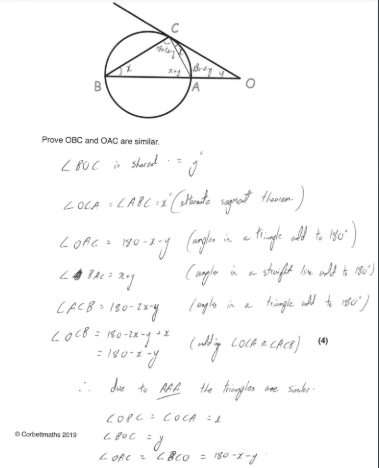 C
180-2x-y x
x x+y 180-x-y y
B A O
Prove OBC and OAC are similar.
∠BOC is shared ∴ = y°
∠OCA = ∠ABC = x° (alternate segment theorem)
∠OAC = 180-x-y (angles in a triangle add to 180°)
∠BAC = x+y (angles in a straight line add to 180°)
∠ACB = 180-2x-y (angles in a triangle add to 180°)
∠OCB = 180-2x-y+x
= 180-x-y (adding ∠OCA & ∠ACB) (4)
∴ due to AAA the triangles are similar.
∠OBC = ∠OCA = x
© Corbettmaths 2019 ∠BOC = y
∠OAC = ∠BCO = 180-x-y.